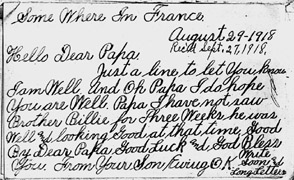 Some Where In France.
August 29-1918
Rec'd Sept. 27, 1918.
Hello Dear Papa.
Just a line to let You know
I am Well. And Oh Papa I do hope
You are Well. Papa I have not saw
Brother Billie for Three Weeks he was
Well & looking Good at that time, Good
By Dear Papa Good Luck & God Bless
You. From Your Son Ewing O.K.
Write
Soon &
Long Letters